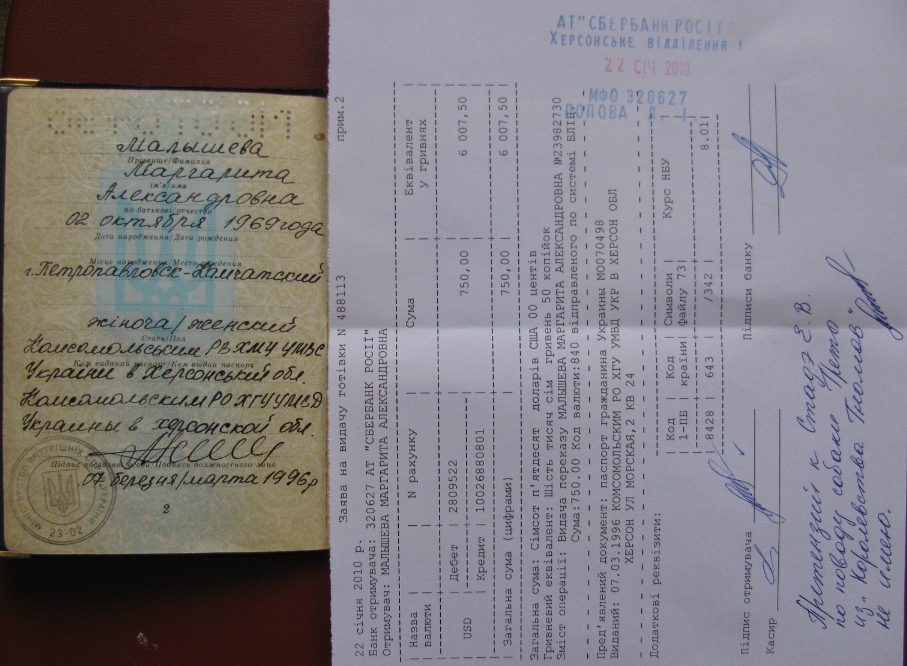 Малышева
Прізвище/Фамилия
Маргарита
ім'я/имя
Александровна
по батькові/отчество
02 октября 1969 года
Дата народження/Дата рождения
Місце народження/Место рождения
г. Петропавловск-Камчатский
жіноча/женский
Стать/Пол
Комсомольським РВ ХМУ УМВС
Ким виданий паспорт/Кем выдан паспорт
України в Херсонській обл.
Комсомольским РО ХГУ УМВД
Украины в херсонской обл.
Підпис посадової особи/Подпись должностного лица
07 березня/марта 1996 р
2
23-02
АТ"СБЕРБАНК РОСІЇ"
ХЕРСОНСЬКЕ ВІДДІЛЕННЯ 1
22 СІЧ 2010
МФО 320627
ПОПОВА Л
прим.2
Заява на видачу готівки N 488113
22 січня 2010 р.
Банк отримувача: 320627 АТ "СБЕРБАНК РОСІЇ"
Отримувач: МАЛЫШЕВА МАРГАРИТА АЛЕКСАНДРОВНА
Назва валюти | N рахунку | Сума | Еквівалент у гривнях
USD | Дебет | 2809522 | 750,00 | 6 007,50
Кредит | 10026880801
Загальна сума (цифрами) | 750,00 | 6 007,50
Загальна сума: Сімсот п'ятдесят доларів США 00 центів
Гривневий еквівалент: Шість тисяч сім гривень 50 копійок
Зміст операції: Видача переказу МАЛЫШЕВА МАРГАРИТА АЛЕКСАНДРОВНА №23982730
Сума:750.00 Код валюти:840 відправленого по системі БЛІЦ
Пред'явлений документ: паспорт гражданина Украины МО070498
Виданий: 07.03.1996 КОМСОМОЛЬСКИМ РО ХГУ УМВД УКР В ХЕРСОН ОБЛ
ХЕРСОН УЛ МОРСКАЯ,2 КВ 24
Додаткові реквізити:
Код 1-ПБ | Код країни | Символи файлу 73 | Курс НБУ
8428 | 643 | /342 | 8.01
Підпис отримувача
Підписи банку
Касир
Претензий к Стадэ Е. В.
по поводу собаки Гретта
из "Королевства Гномов"
не имею.